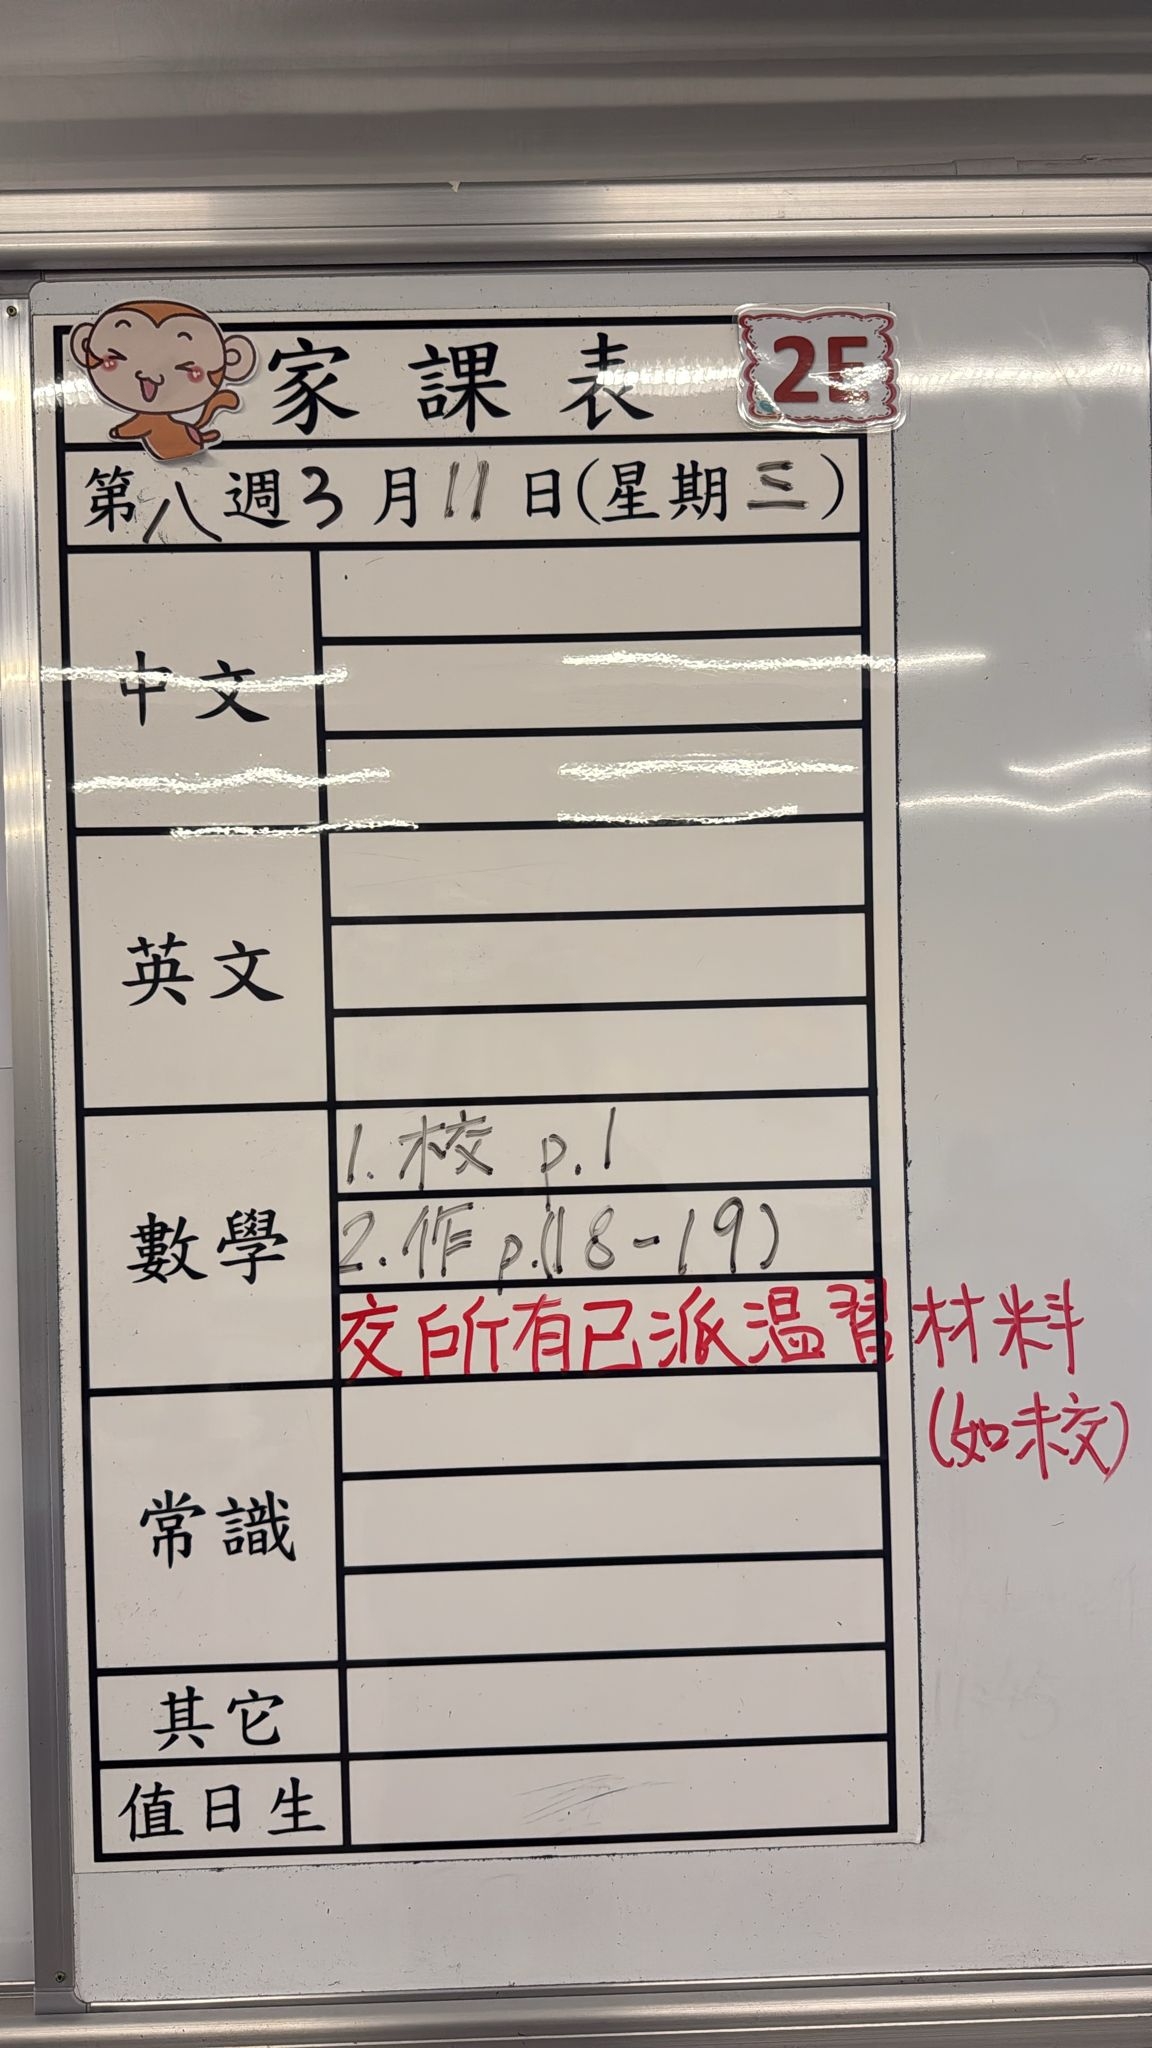 家課表 2E
第八週3月11日(星期三)
中文
英文
數學
1. 校 p.1
2. 作 p.(18-19)
交所有已派温習材料
(如未交)
常識
其它
值日生